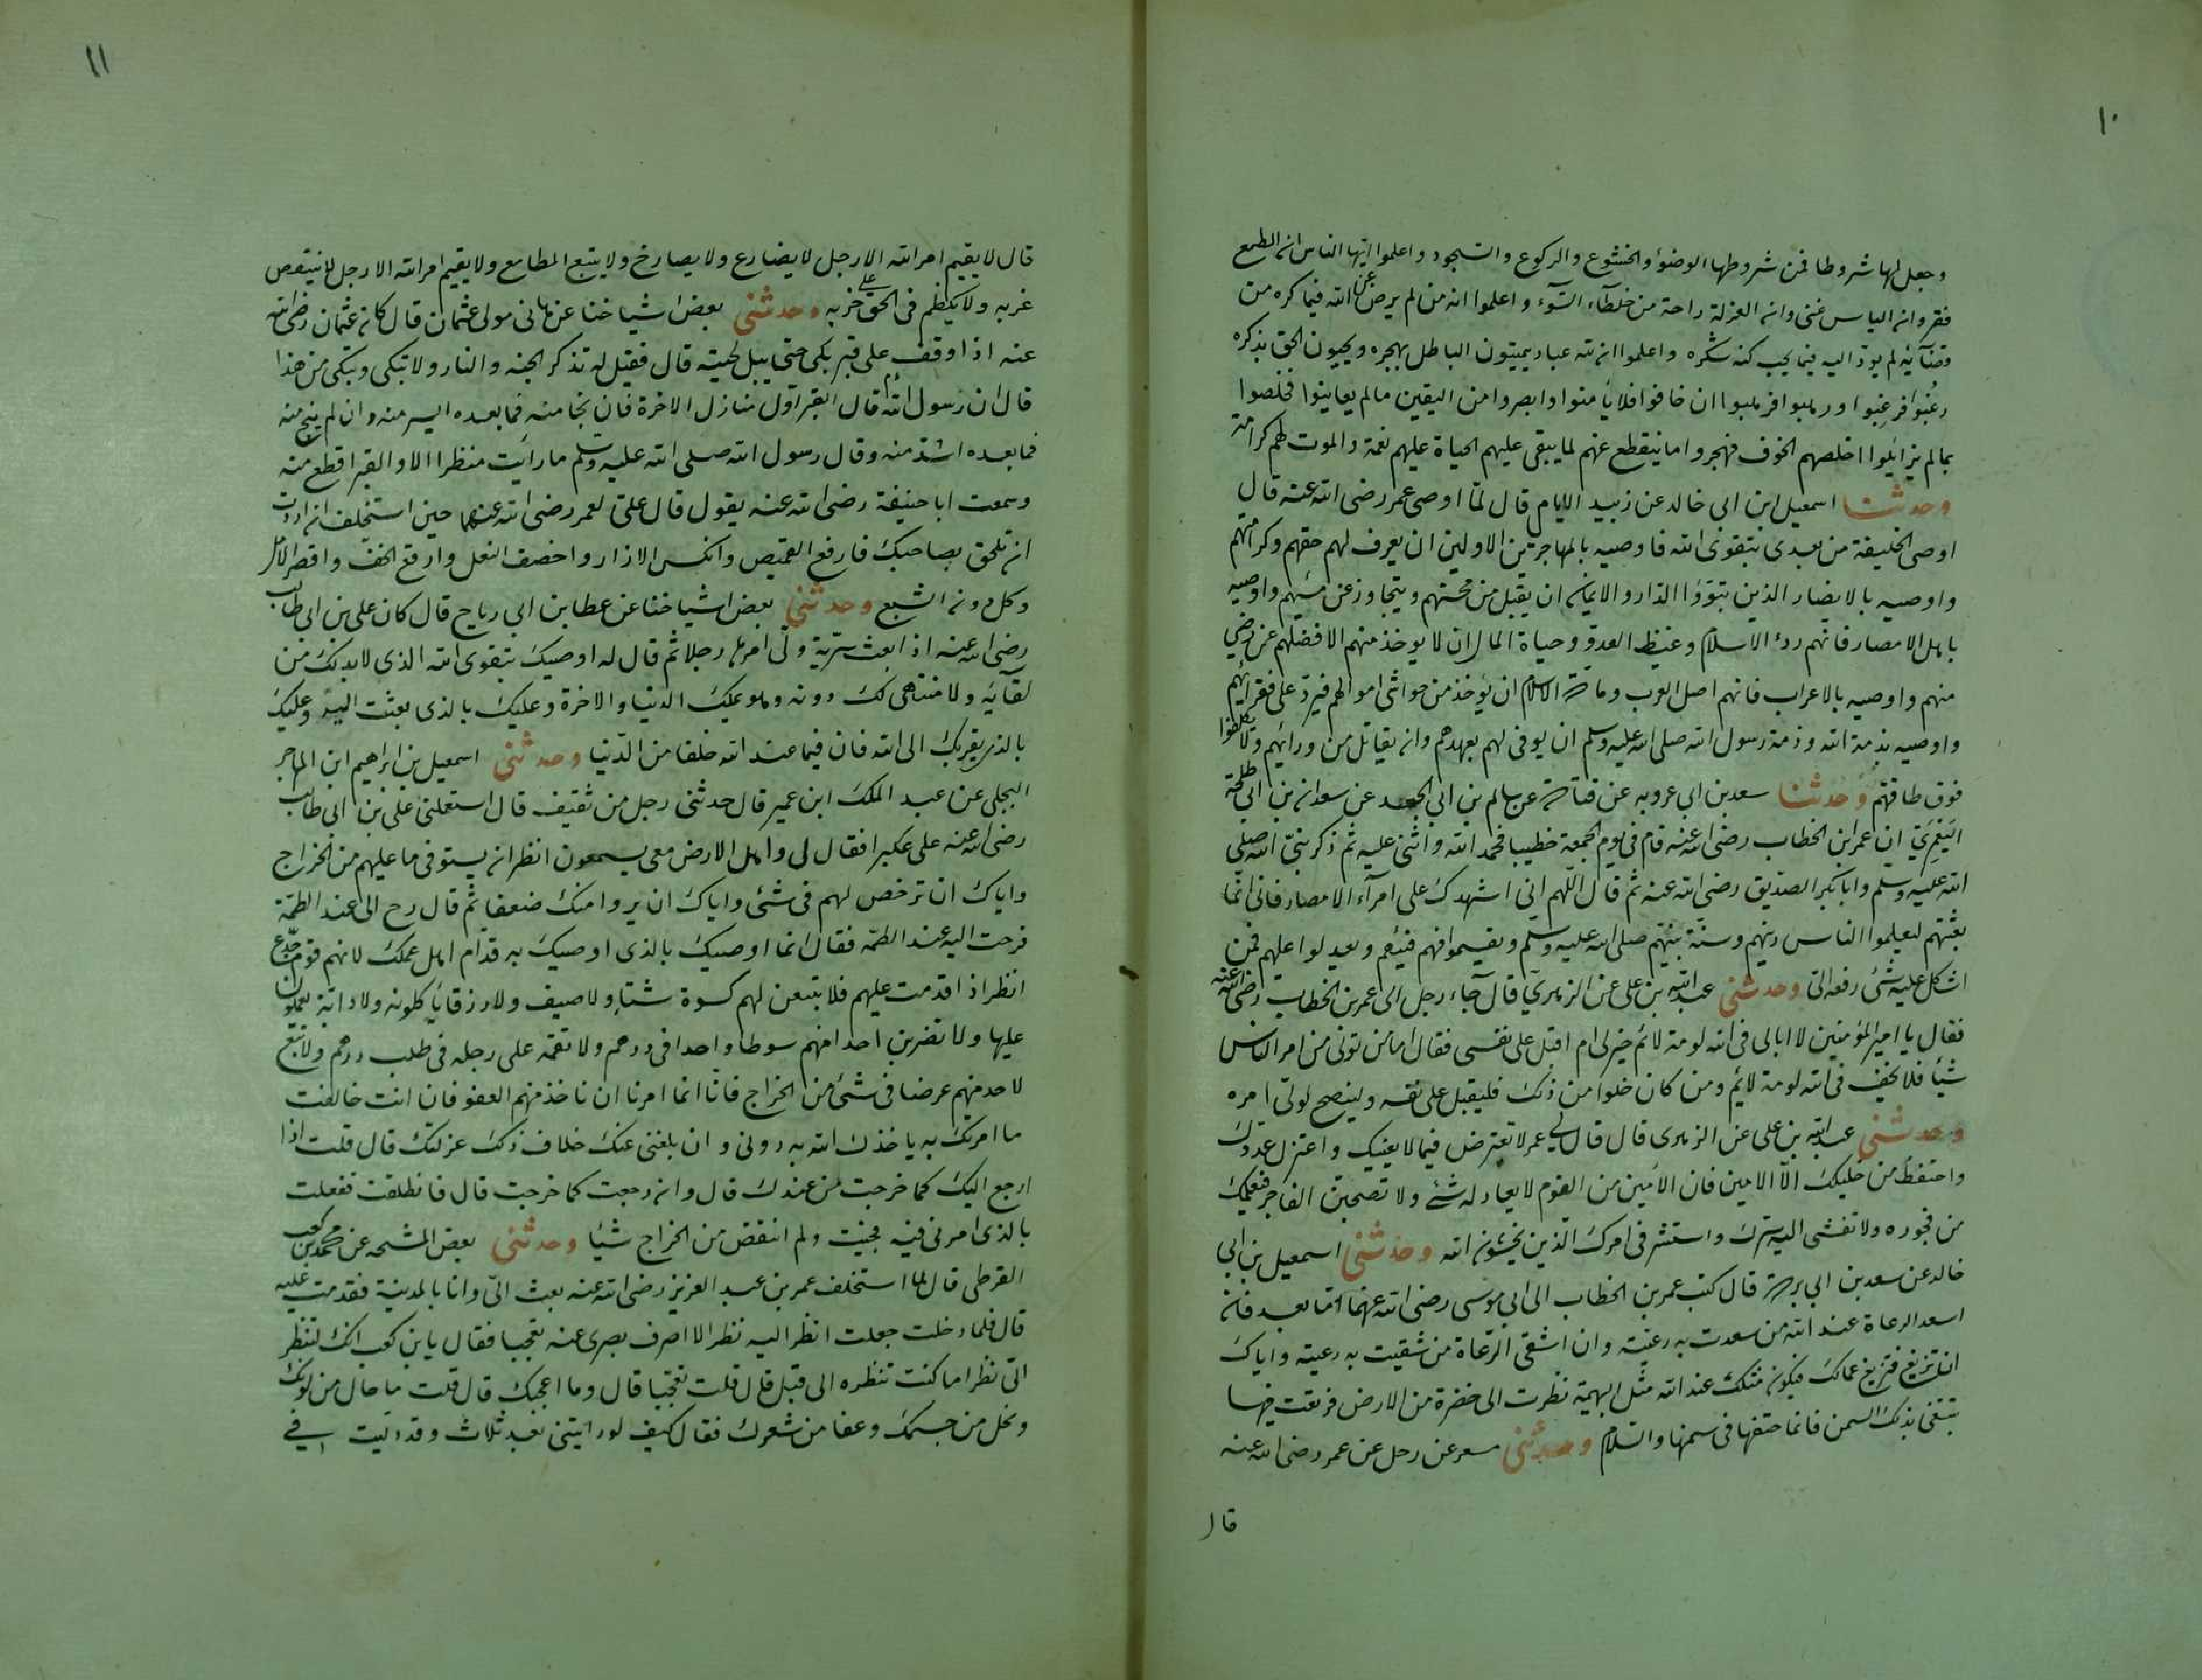 ١٠
وجعل لها شروطا فمن شروطها الوضوء والخشوع والركوع والسجود واعلموا ايها الناس ان الطمع
فقر وان الياس غنى وان العزلة راحة من خلطآء السّوء واعلموا انه من لم يرض عن الله فيما كره من
قضآئه لم يودّ اليه فيما يحب كنه شكره واعلموا ان لله عباد يميتون الباطل بهجره ويحيون الحق بذكره
رغبوا فرغبوا ورهبوا فرهبوا ان خافوا فلا يأمنوا وابصروا من اليقين مالم يعاينوا فخلصوا
بمالم يزايلوا اخلصهم الخوف فهجروا ما ينقطع عنهم لما يبقى عليهم الحياة عليهم نعمة والموت لهم كرامة
وحدثنا اسمعيل ابن ابى خالد عن زبيد الايام قال لمّا اوصى عمر رضى الله عنه قال
اوصى الخليفة من بعدى بتقوى الله فاوصيه بالمهاجرين الاولين ان يعرف لهم حقهم وكرامتهم
واوصيه بالانصار الذين تبوؤا الدار والايمان ان يقبل من محسنهم ويتجاوز عن مسيهم واوصيه
باهل الامصار فانهم ردء الاسلام وغيظ العدو وحياة المال ان لا يوخذ منهم الا فضلهم عن رضى
منهم واوصيه بالاعراب فانهم اصل العرب ومادة الاسلام ان يؤخذ من حواشى اموالهم فيردّ على فقرائهم
واوصيه بذمة الله وذمة رسول الله صلى الله عليه وسلم ان يوفى لهم بعهدهم وان يقاتل من ورائهم ولا يكلفوا
فوق طاقتهم وحدثنا سعد بن ابى عروبه عن قتادة عن سالم بن ابى الجعد عن سعدان بن ابى طلحة
اليعمرىّ ان عمر ابن الخطاب رضى الله عنه قام فى يوم الجمعة خطيبا فحمد الله واثنى عليه ثم ذكر نبىّ الله صلى
الله عليه وسلم وابا بكر الصديق رضى الله عنه ثم قال اللّهم انى اشهدك على امرآء الامصار فانى انما
بعثتهم ليعلموا الناس دينهم وسنّة نبيّهم صلى الله عليه وسلم ويقسموا فهم فيئهم ويعدلوا عليهم فمن
اشكل عليه شئ رفعه الىّ وحدثنى عبد الله بن على عن الزهرىّ قال جآء رجل الى عمر بن الخطاب رضى الله عنه
فقال يا امير المؤمنين لا ابالى فى الله لومة لائم خير لى ام اقبل على نفسى فقال اما من تولى من امر الناس
شيأ فلا يخف فى الله لومة لائم ومن كان خلوا من ذلك فليقبل على نفسه ولينصح لولى امره
وحدثنى عبد الله بن على عن الزهرى قال قال لى عمر لا تعترض فيما لا يعنيك واعتزل عدوّك
واحتفظ من خليلك الّا الامين فان الامين من القوم لا يعادله شئ ولا تصحبنّ الفاجر فيعلمك
من فجوره ولا تفشى اليه سرّك واستشر فى امرك الّذين يخشون الله وحدثنى اسمعيل بن ابى
خالد عن سعد بن ابى بردة قال كتب عمر بن الخطاب الى ابى موسى رضى الله عنهما اما بعد فان
اسعد الرعاة عند الله من سعدت به رعيته وان اشقى الرّعاة من شقيت به رعيته واياك
ان تزيغ فتزيغ عمالك فيكون مثلك عند الله مثل البهيمة نظرت الى خضرة من الارض فرتعت فيها
تبتغى بذلك السمن فانما حتفها فى سمنها والسّلام وحدثنى مسعر عن رجل عن عمر رضى الله عنه
قال
١١
قال لا يقيم امر الله الا رجل لا يضارع ولا يصارخ ولا يتبع المطامع ولا يقيم امر الله الا رجل لا ينتقص
غربه ولا يكظم فى الحق على حزبه وحدثنى بعض اشياخنا عن هانى مولى عثمان قال كان عثمان رضى الله
عنه اذا وقف على قبر بكى حتى يبل لحيته قال فقيل له تذكر الجنه والنار ولا تبكى وتبكى من هذا
قال ان رسول الله قال القبر اوّل منازل الاخرة فان نجا منه فما بعده ايسر منه وان لم ينج منه
فما بعده اشدّ منه وقال رسول الله صلى الله عليه وسلم ما رأيت منظرا الا والقبر اقطع منه
وسمعت ابا حنيفة رضى الله عنه يقول قال علىّ لعمر رضى الله عنهما حين استخلف ان اردت
ان تلحق بصاحبك فارقع القميص وانكس الازار واخصف النعل وارقع الخف واقصر الامل
وكل دون الشبع وحدثنى بعض اشياخنا عن عطا بن ابى رباح قال كان على بن ابى طالب
رضى الله عنه اذا بعث سريّة ولّى امرها رجلا ثم قال له اوصيك بتقوى الله الذى لا بد لك من
لقآئه ولا منتهى لك دونه وهو يملك الدنيا والاخرة وعليك بالذى بعثت اليه وعليك
بالذى يقربك الى الله فان فيما عند الله خلفا من الدّنيا وحدثنى اسمعيل بن ابراهيم ابن المهاجر
البجلى عن عبد الملك ابن عمير قال حدثنى رجل من ثقيف قال استعملنى على بن ابى طالب
رضى الله عنه على عكبرا فقال لى واهل الارض معى يسمعون انظر ان يستوفى ما عليهم من الخراج
واياك ان ترخص لهم فى شئ واياك ان يروا منك ضعفا ثم قال رح الىّ عند الظهر
فرحت اليه عند الظهر فقال انما اوصيك بالذى اوصيك به قدام اهل عملك لانهم قوم خدع
انظر اذا قدمت عليهم فلا تبيعن لهم كسوة شتاء ولا صيف ولا رزقا يأكلونه ولا دابة يعملون
عليها ولا تضربن احدا منهم سوطا واحدا فى درهم ولا تقمه على رجله فى طلب درهم ولا تبع
لاحد منهم عرضا فى شئ من الخراج فانّا انما امرنا ان ناخذ منهم العفو فان انت خالفت
ما امرتك به ياخذك الله به دونى وان بلغنى عنك خلاف ذلك عزلتك قال قلت اذا
ارجع اليك كما خرجت من عندك قال وان رجعت كما خرجت قال فانطلقت ففعلت
بالذى امرنى فيه فجئت ولم انقض من الخراج شيأ وحدثنى بعض المشيخه عن محمد بن كعب
القرظى قال لما استخلف عمر بن عبد العزيز رضى الله عنه بعث الىّ وانا بالمدينة فقدمت عليه
قال فلما دخلت جعلت انظر اليه نظرا لا اصرف بصرى عنه تعجبا فقال يابن كعب انك لتنظر
الىّ نظرا ما كنت تنظره الى قبل قال قلت تعجبا قال وما اعجبك قال قلت ما حال من لونك
ونحل من جسمك وعفا من شعرك فقال كيف لو رايتنى بعد ثلاث وقد دليت فى